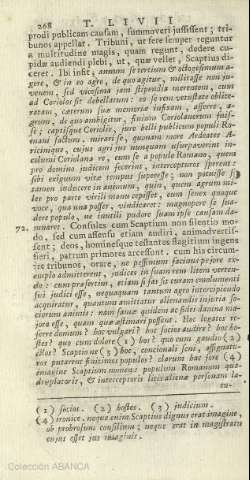 268 T. LIVII
prodi publicam causam, summoveri jussissent; tri-
bunos appellat. Tribuni, ut fere semper reguntur
a multitudine magis, quam regunt, dedere cu-
pidæ audiendi plebi, ut, quæ vellet, Scaptius di-
ceret. Ibi infit; annum se tertium & octogesimum a-
gere, & in eo agro, de quo agitur, militasse non ju-
venem, sed vicesima jam stipendia merentem, cum
ad Coriolos sit debellatum: eo se rem vetustate oblite-
ratam, ceterum suæ memoriæ infixam, afferre, a-
grum, de quo ambigitur, finium Coriolanorum fuis-
se; captisque Coriolis, jure belli publicum populi Ro-
mani factum. mirari se, quonam more Ardeates A-
ricinique, cujus agri jus nunquam usurpaverint in-
columi Coriolana re, eum se a populo Romano, quem
pro domino judicem fecerint, intercepturos sperent:
sibi exiguum vitæ tempus superesse; non potuisse se
tamen inducere in animum, quin, quem agrum mi-
les pro parte virili manu cepisset, eum senex quoque
voce, qua una posset, vindicaret: magnopere se sua-
dere populo, ne inutili pudore suam ipse causam da-
72. mnaret. Consules cum Scaptium non silentio mo-
do, sed cum assensu etiam audiri, animadvertis-
sent; deos, hominesque testantes flagitium ingens
fieri, patrum primores arcessunt. cum his circum-
ire tribunos, orare, ne pessimum facinus pejore ex-
emplo admitterent, judices in suam rem litem verten-
do: cum præsertim, etiam si fas sit curam emolumenti
sui judici esse, nequaquam tantum agro intercipiendo
acquiratur, quantum amittatur alienandis injuria so-
ciorum animis: nam famæ quidem ac fidei damna ma-
jora esse, quam quæ æstimari possent. Hoc legatos re-
ferre domum? hoc vulgari? hoc socios audire? hoc ho-
stes? quo cum dolore (1) hos? quo cum gaudio (2)
illos? Scaptio ne (3) hoc, concionali seni, assignatu-
ros putarent finitimos populos? clarum hac fore (4)
imagine Scaptium. populum Romanum qua-
druplatoris, & interceptoris litis alienæ personam la-
tu-
(1) socios. (2) hostes. (3) judicium.
(4) ironice. neque enim Scaptius dignus erat imagine,
ob probrosum consilium; neque erat in magistratu
cujus esset jus imaginis.
Colección ABANCA